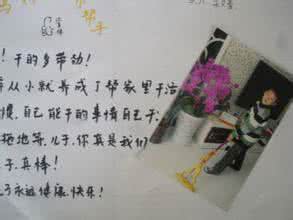 小帮手
！干的多带劲！
从小就养成了帮家里干活
惯，自己能干的事情自己干，
拖地等，儿子，你真是我们
子，真棒！
永远健康快乐！